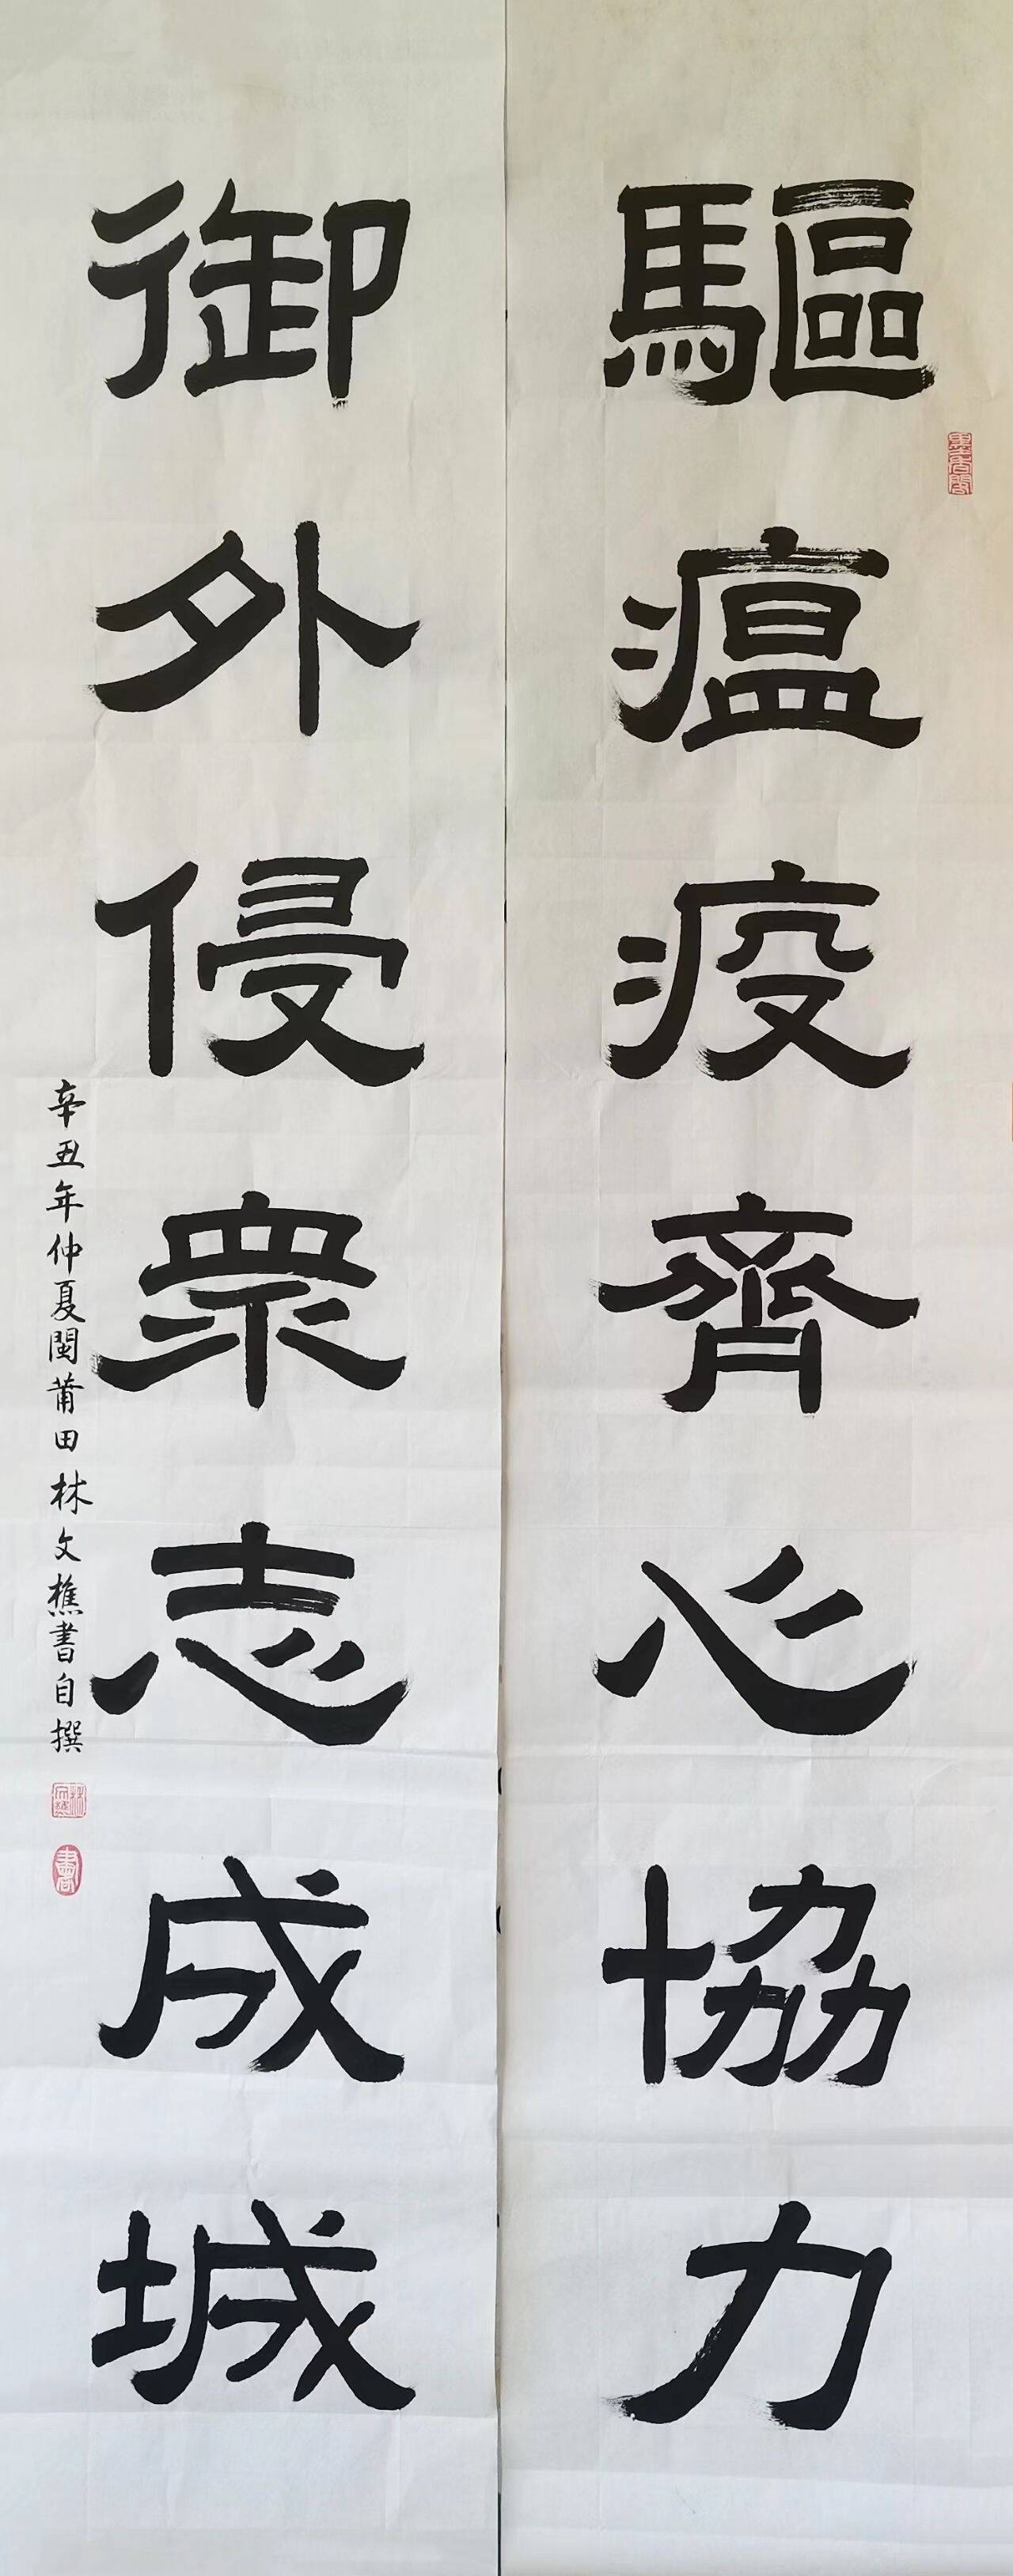 驅瘟疫齊心協力
御外侵衆志成城
辛丑年仲夏閩莆田林文樵書自撰
墨香閣